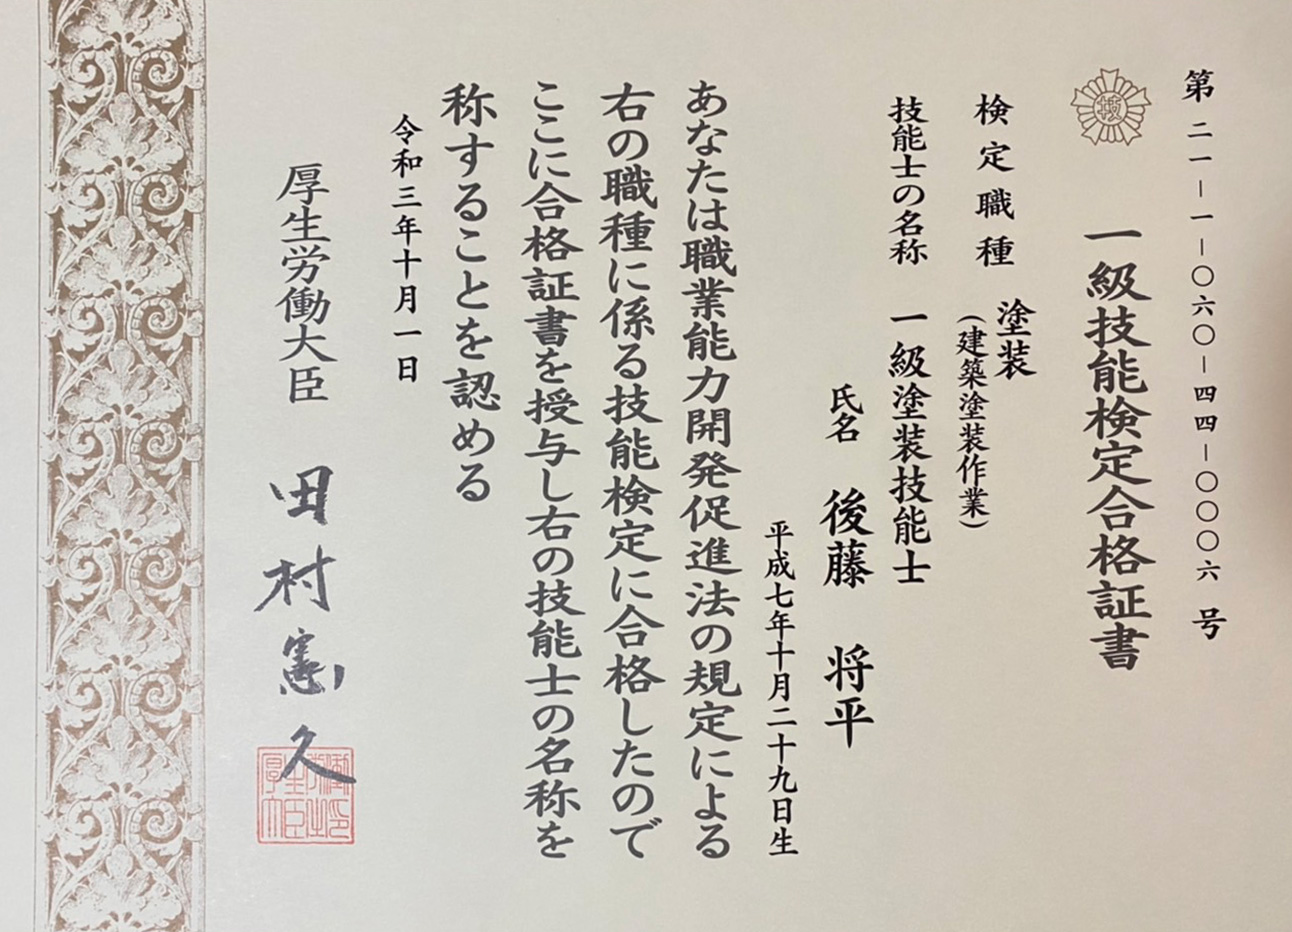 第二一－一－〇六〇－四四－〇〇〇六号
技
一級技能検定合格証書
検定職種 塗装
（建築塗装作業）
技能士の名称 一級塗装技能士
氏名 後藤 将平
平成七年十月二十九日生
あなたは職業能力開発促進法の規定による
右の職種に係る技能検定に合格したので
ここに合格証書を授与し右の技能士の名称を
称することを認める
令和三年十月一日
厚生労働大臣 田村憲久